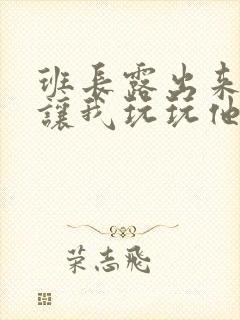 班长露出来
讓我玩玩他
荣志飛